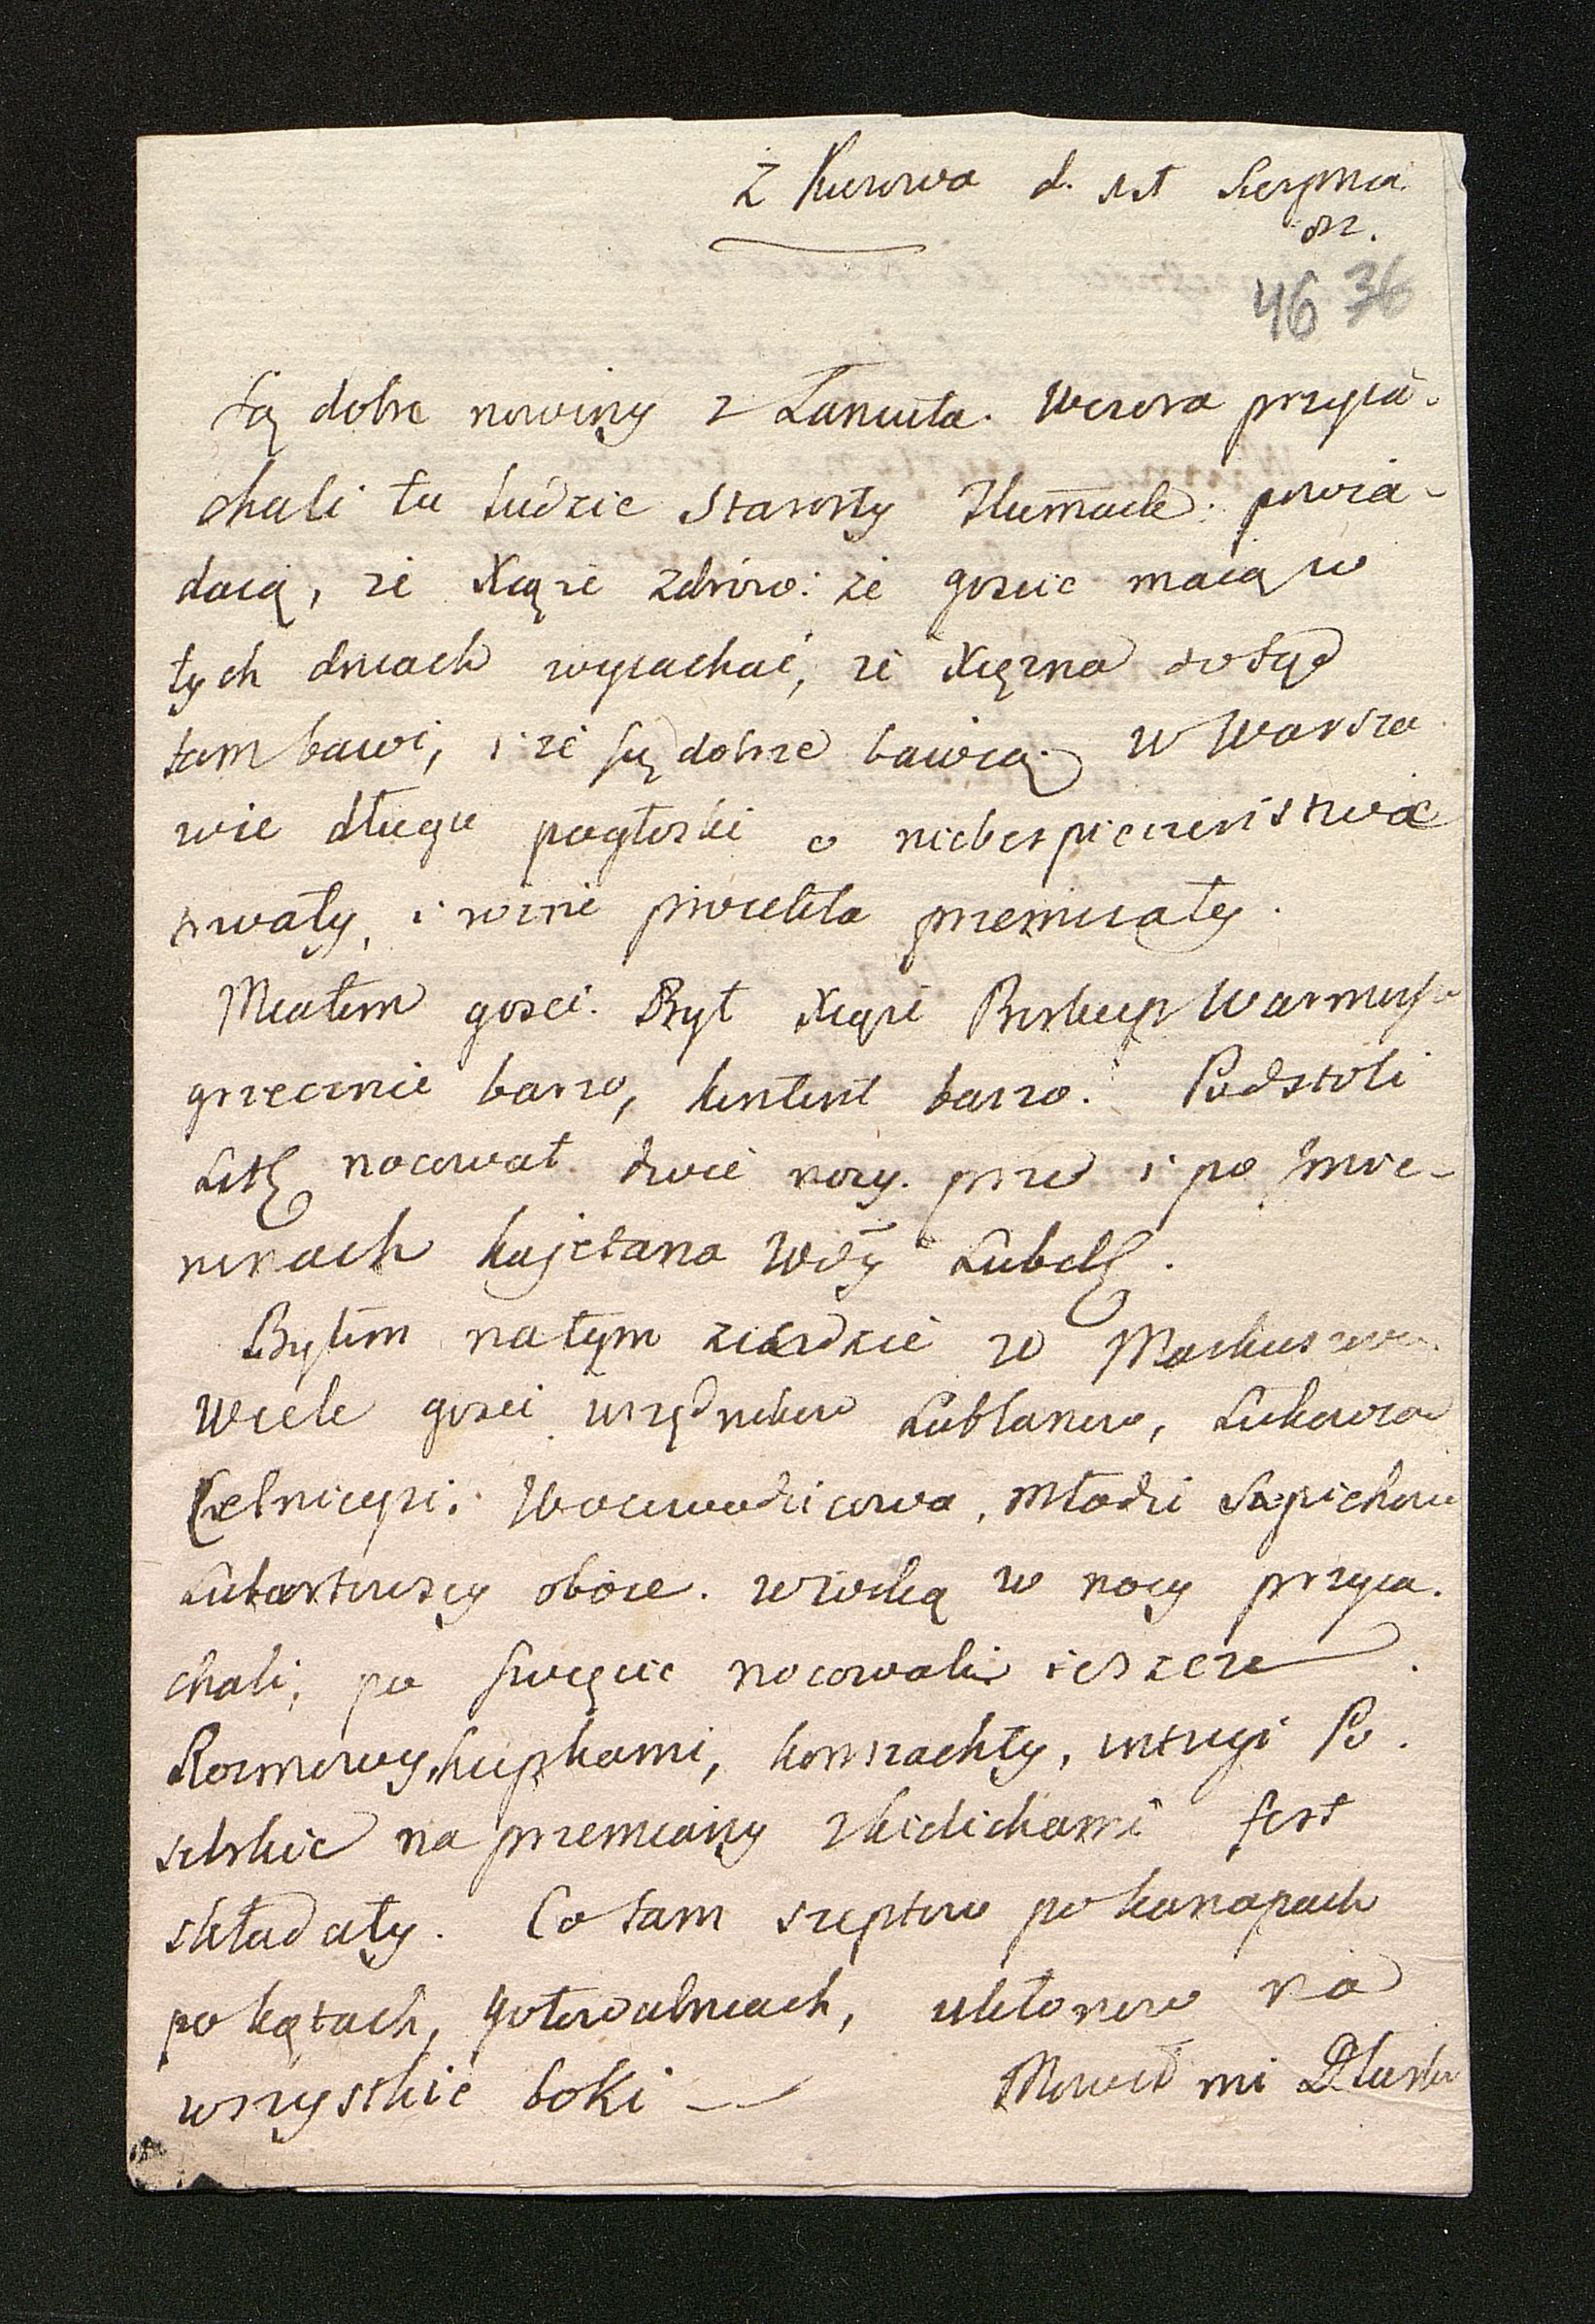 Z Kurowa d. Sierpnia
82.
46 36
Są dobre nowiny z Łancuta. Wczora przyia-
chali tu ludzie Starosty Tłumack: powia-
daią, że Xiąże zdrów: że goscie maią w
tych dniach wyiachać, że Xiężna dotąd
tam bawi, i że się dobrze bawią. W Warsza
wie długo pogłoski o niebespieczeństwie
trwały, i różnie powietrza przemieniały.
Miałem gosci. Był Xiąże Biskup Warmiyski
grzecznie barzo, kontent barzo. Podstoli
Lit: nocował dwie nocy. przed i po Imie-
ninach Kajetana Wdy Lubel:.
Byłem na tym zieździe w Markuszowie.
Wiele gosci urzędników Lublanów,
Woiewodzicowa, młodzi Sapiehowie
oboie. w wilią w nocy przyia-
chali, po Święcie nocowali ieszcze.
Rozmowy kupkami, konszachty, intrygi Po-
selskie na przemiany z kielichami fest
składały. Co tam szeptów po kanapach
po kątach, gotowalniach, ukłonów na
wszystkie boki — Mówił mi Dłuski